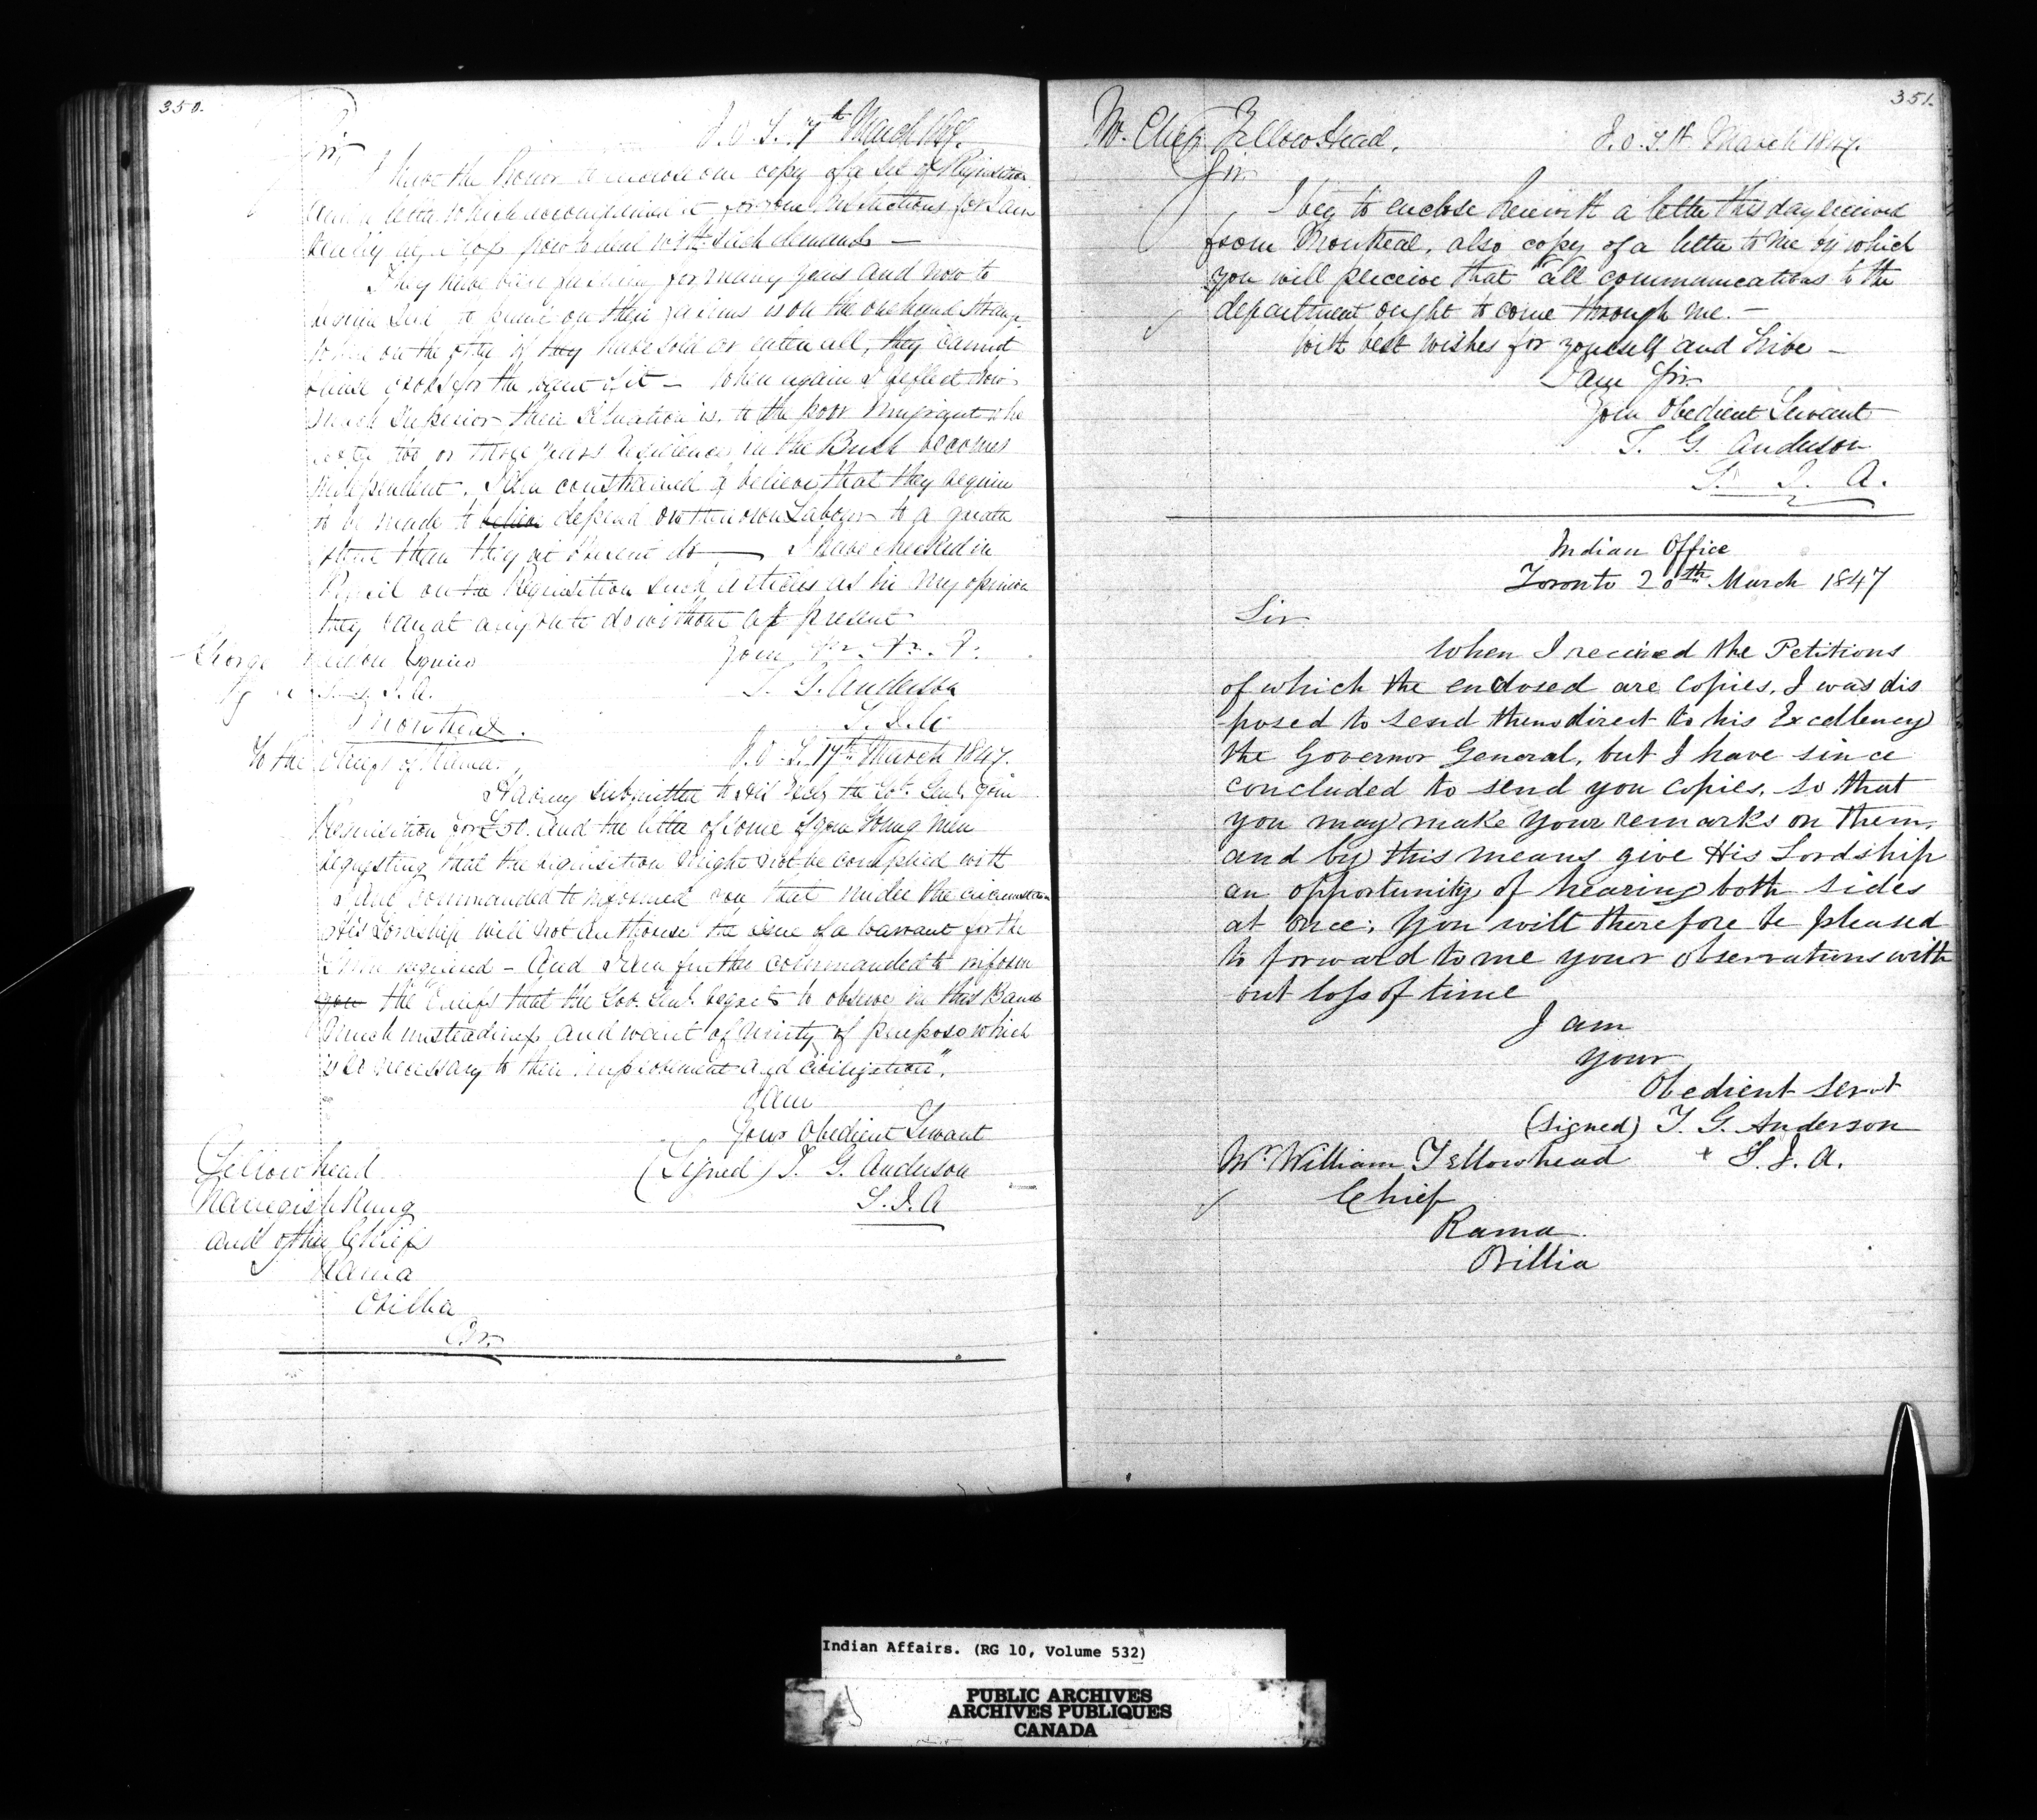 350.
I. O. T. 17th March 1847.
Sir,
I have the honor to enclose one copy of a set of Requisition
and a letter which accompanied it for your Instructions for I am
really at a loss how to deal with such demands —
They have been farming for many years and now to
require Seed to put in on their farms is on the one hand strange
when on the other if they have sold or eaten all, they cannot
raise crops for the want of it — When again I reflect how
much superior their situation is to the poor Emigrant who
after two or three years residence in the Bush becomes
independent. I am constrained to believe that they require
to be made to believe depend on their own Labour to a greater
than they at present do — I have checked in
Pencil on the Requisition such articles as in my opinion
they can at any rate do without at present
George Esquire
T. G. Anderson
S. I. A.
Montreal.
To the Chiefs of Rama.
I. O. T. 17th March 1847.
Having submitted to His Excly the Gov. Genl. your
Requisition for £50. and the letter of some of your Young Men
requesting that the requisition might not be complied with
I am commanded to informed you that under the circumstances
His Lordship will not authorise the issue of a warrant for the
required — And I am further commanded to inform
you the "Chiefs that the Gov. Genl. regrets to observe in this Band
much unsteadiness and want of Unity of purpose which
is so necessary to their improvement and civilization".
I am
Your Obedient Servant
(Signed) T. G. Anderson
S. I. A
Yellowhead
and other Chiefs
Rama
Orillia
351.
Mr. Chief Yellowhead.
I. O. T. March 1847.
Sir
I beg to enclose herewith a letter this day received
from Montreal, also copy of a letter to me by which
you will perceive that "all communications to the
department ought to come through me. —
With best wishes for yourself and Tribe —
I am Sir
Your Obedient Servant
T. G. Anderson
S. I. A.
Indian Office
Toronto 20th March 1847
Sir
When I recieved the Petitions
of which the enclosed are copies, I was dis
posed to send them direct to his Excellency
the Governor General, but I have since
concluded to send you copies, so that
you may make your remarks on them,
and by this means give His Lordship
an opportunity of hearing both sides
at once; You will therefore be pleased
to forward to me your observations with
out loss of time
I am
your
Obedient Servt
(signed) T. G. Anderson
Mr. William Yellowhead S. I. A.
Chief
Rama
Orillia
Indian Affairs. (RG 10, Volume 532)
PUBLIC ARCHIVES
ARCHIVES PUBLIQUES
CANADA